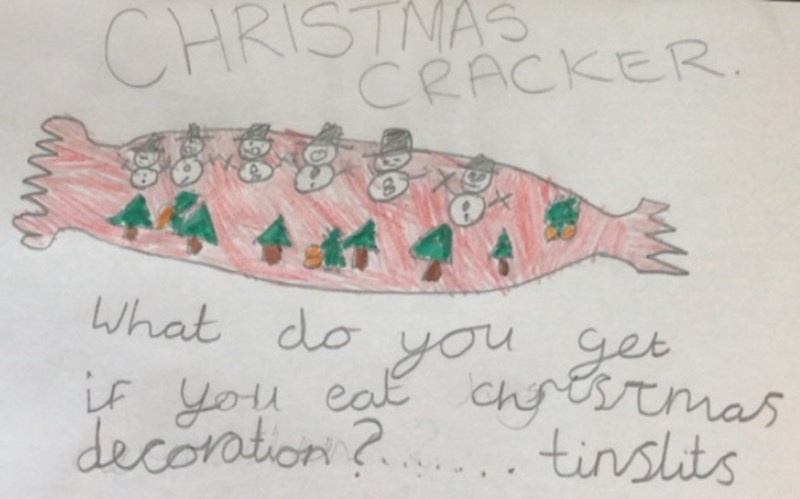 CHRISTMAS
CRACKER.
What do you get
if you eat christmas
decoration?....... tinslits